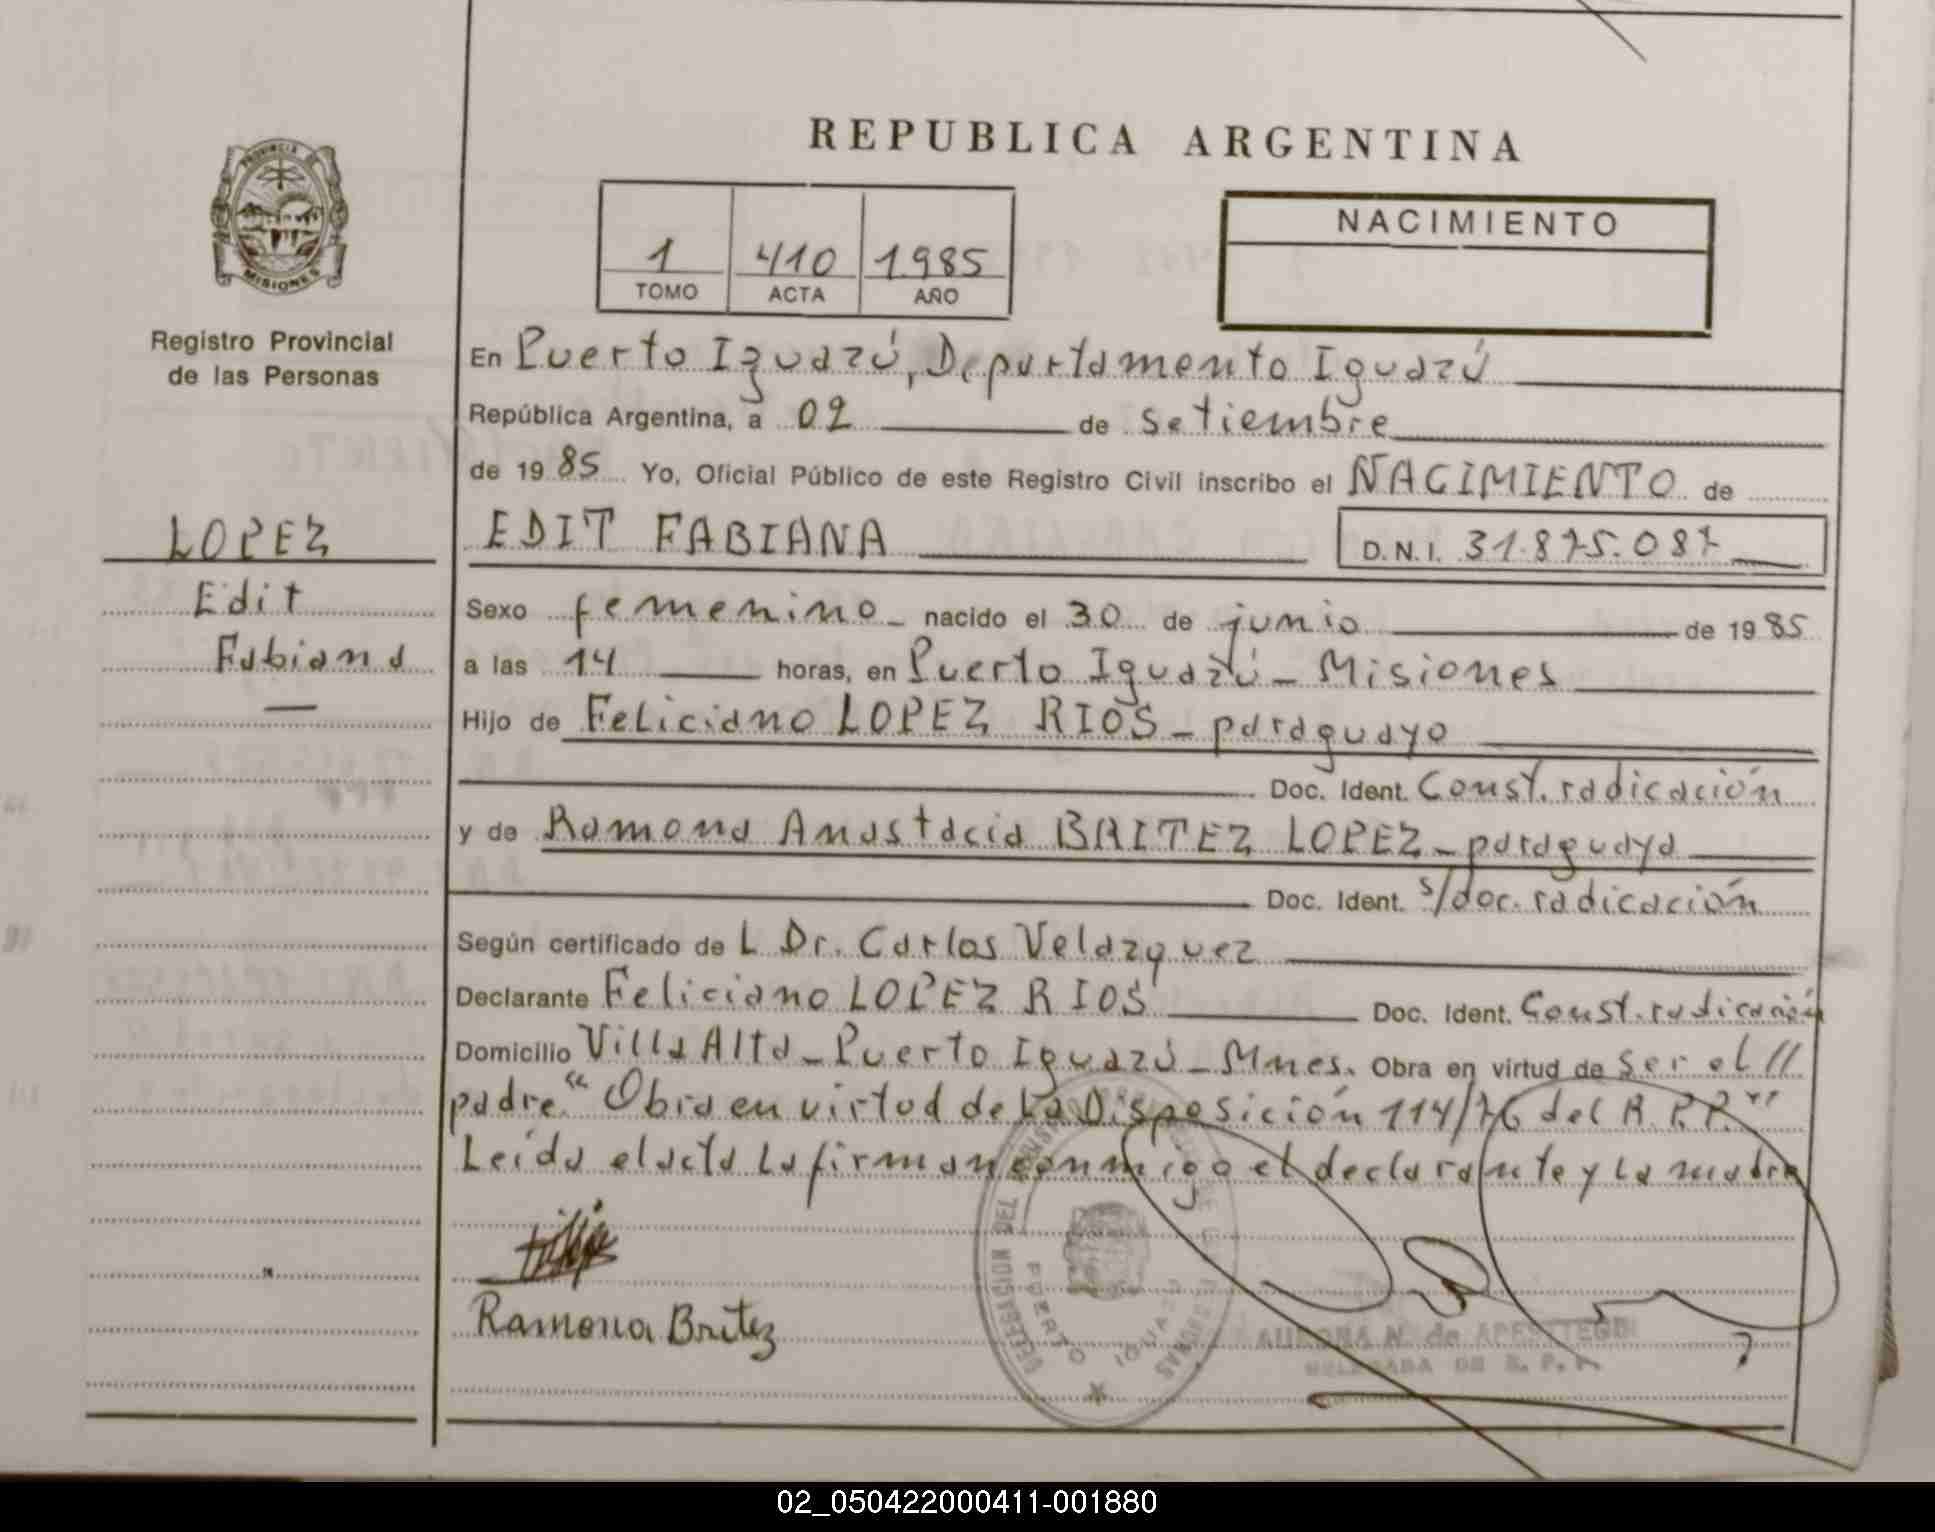 REPUBLICA ARGENTINA
PROVINCIA DE
MISIONES
Registro Provincial
de las Personas
1 410 1985
TOMO ACTA AÑO
NACIMIENTO
En Puerto Iguazú, Departamento Iguazú
República Argentina, a 02 de setiembre
de 1985 Yo, Oficial Público de este Registro Civil inscribo el NACIMIENTO de
LOPEZ
Edit
Fabiana
EDIT FABIANA D.N.I. 31.875.087
Sexo femenino nacido el 30 de junio de 1985
a las 14 horas, en Puerto Iguazú - Misiones
Hijo de Feliciano LOPEZ RIOS - paraguayo
Doc. Ident. Const. radicación
y de Ramona Anastacia BRITEZ LOPEZ - paraguaya
Doc. Ident. s/doc. radicación
Según certificado de L Dr. Carlos Velazquez
Declarante Feliciano LOPEZ RIOS Doc. Ident. Const. radicación
Domicilio Villa Alta - Puerto Iguazú - Mnes. Obra en virtud de ser el //
padre. "Obra en virtud de la Disposición 114/76 del R.P.P."
Leída el acta la firman conmigo el declarante y la madre
Ramona Britez
DELEGACION DEL
PUERTO IGUAZU
AURORA N. de APESTEGUI
DELEGADA DE R. P. P.
02_050422000411-001880